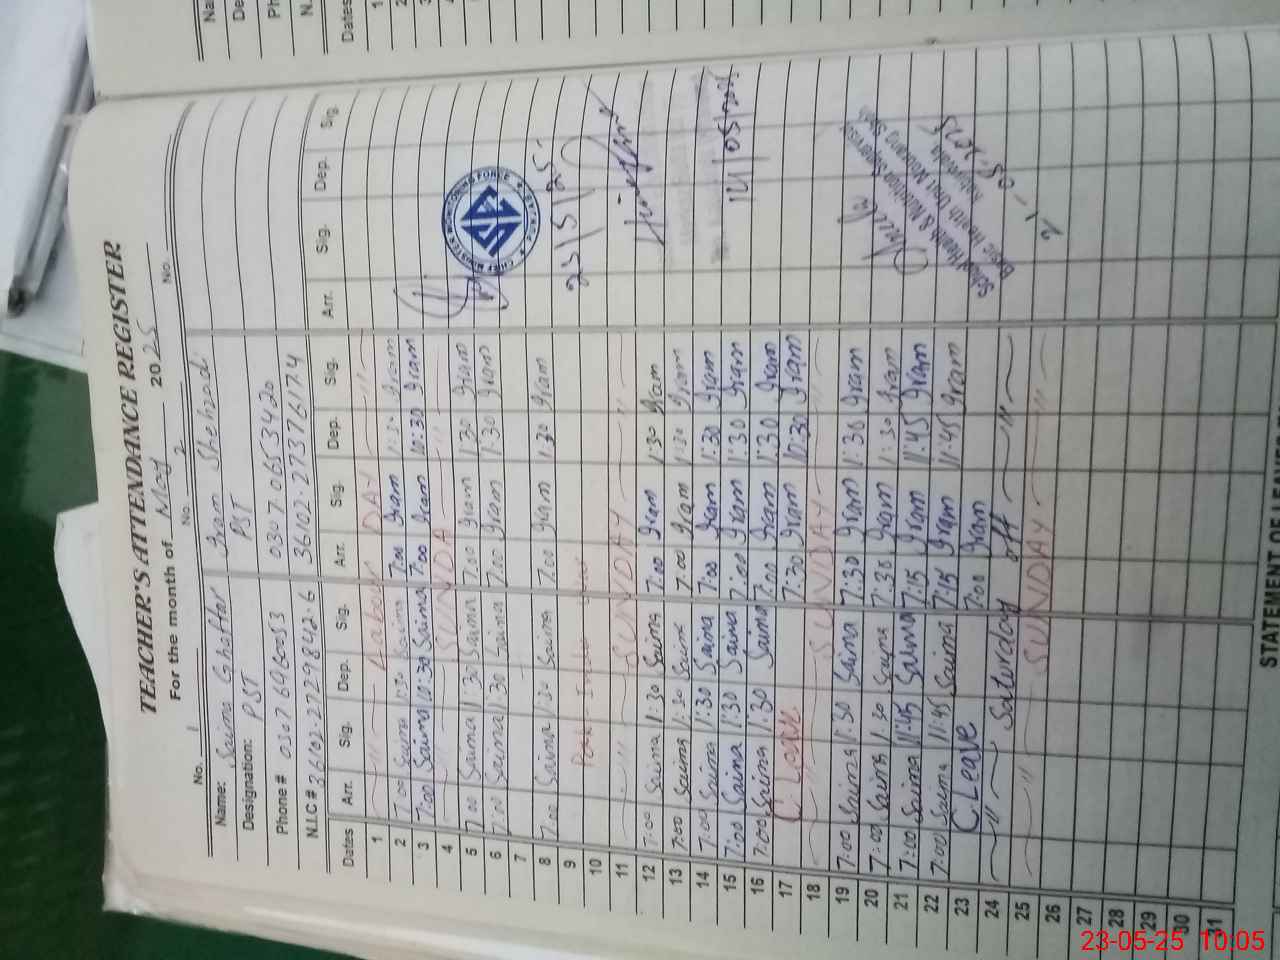 TEACHER'S ATTENDANCE REGISTER
For the month of May 2 2025
No. 1 No. 2 No.
Name: Saima Ghaffar Iram Shehzadi
Designation: PST PST
Phone # 0307 6960053 0307.0653420
N.I.C # 36102.2729842.6 36102.2737617.4
Dates Arr. Sig. Dep. Sig. Arr. Sig. Dep. Sig. Arr. Sig. Dep. Sig.
1 Labour DAY
2 7:00 Saima 1:30 Saima 7:00 Iram 1:30 Iram
3 7:00 Saima 10:30 Saima 7:00 Iram 10:30 Iram
4 SUNDA
5 7:00 Saima 1:30 Saima 7:00 Iram 1:30 Iram
6 7:00 Saima 1:30 Saima 7:00 Iram 1:30 Iram
7
8 7:00 Saima 1:30 Saima 7:00 Iram 1:30 Iram
9
10
11 SUNDAY
12 7:00 Saima 1:30 Saima 7:00 Iram 1:30 Iram
13 7:00 Saima 1:30 Saima 7:00 Iram 1:30 Iram
14 7:00 Saima 1:30 Saima 7:00 Iram 1:30 Iram
15 7:00 Saima 1:30 Saima 7:00 Iram 1:30 Iram
16 7:00 Saima 1:30 Saima 7:00 Iram 1:30 Iram
17 C. Leave 7:30 Iram 10:30 Iram
18 SUNDAY
19 7:00 Saima 1:30 Saima 7:30 Iram 1:30 Iram
20 7:00 Saima 1:30 Saima 7:30 Iram 1:30 Iram
21 7:00 Saima 11:45 Saima 7:15 Iram 11:45 Iram
22 7:00 Saima 11:45 Saima 7:15 Iram 11:45 Iram
23 C. Leave 7:00 Iram
24 Saturday off
25 SUNDAY
26
27
28
29
30
31
CHIEF MINISTER MONITORING FORCE
14/05/2025
School Health & Nutrition Supervisor
Basic Health Unit
STATEMENT OF LEAVE
Dates
1
2
3
23-05-25 10:05